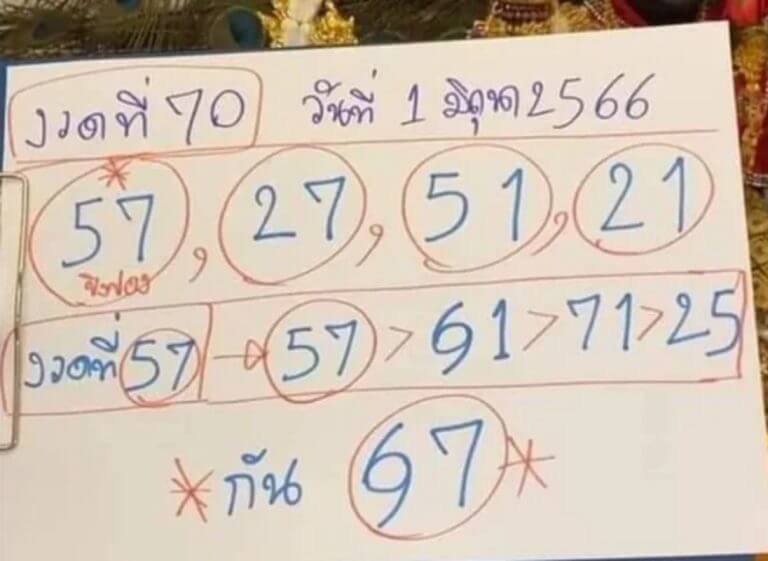 งวดที่ 70 วันที่ 1 มิถุนา 2566
57, 27, 51, 21
งวดที่ 57 → 57 > 61 > 71 > 25
*กัน 67*